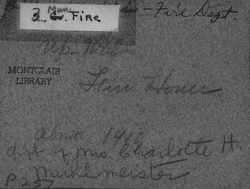 Mun.
3 G. FIRE
- Fire Dept.
Up. Mtc.
MONTCLAIR
LIBRARY
Fire House
about 1910
gift of Mrs Charlotte H.
Muhlmeister
P257